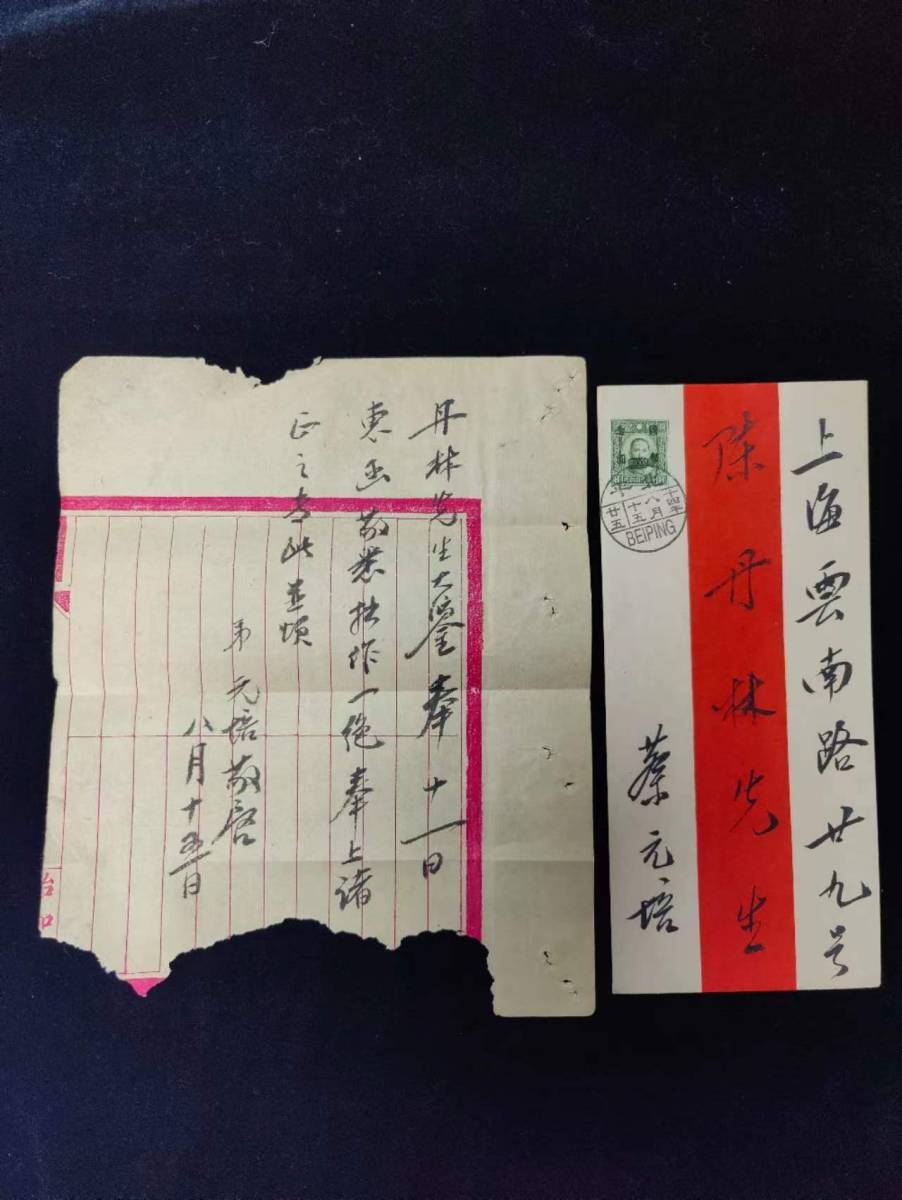 丹林先生大鑒奉十一日
惠函敬悉拙作一絶奉上諸
正之专此並頌
弟 元培敬启
八月十五日
上海雲南路廿九号
陈丹林先生
蔡元培
北平
十四年
八月
十五
廿五
BEIPING